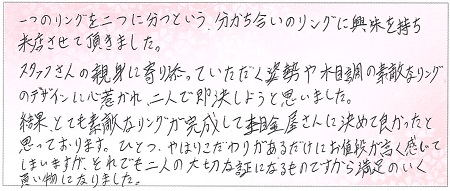 一つのリングを二つに分つという、分かち合いのリングに興味を持ち
来店させて頂きました。
スタッフさんの親身に寄り添っていただく姿勢や木目調の素敵なリング
のデザインに心惹かれ、二人で即決しようと思いました。
結果、とても素敵なリングが完成して杢目金屋さんに決めて良かったと
思っております。ひとつ、やはりこだわりがあるだけにお値段が高く感じて
しまいますが、それでも二人の大切な証になるものですから満足のいく
買い物になりました。